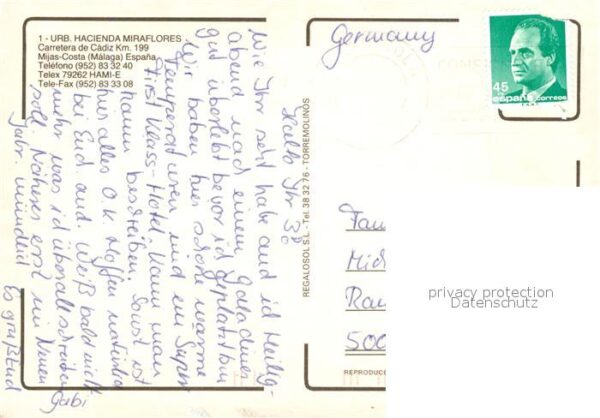 1 - URB. HACIENDA MIRAFLORES
Carretera de Cádiz Km. 199
Mijas-Costa (Málaga) España
Teléfono (952) 83 32 40
Telex 79262 HAMI-E
Tele-Fax (952) 83 33 08
Germany
45
españa correos
Hallo Ihr 3!
Wie Ihr seht habe auch ich Heilig-
abend nach einem Galadiner
gut überlebt bevor ich geplatzt bin
Wir haben hier schöne warme
Temperaturen und ein Super
First Klass-Hotel. Kann man
kaum beschreiben. Sonst ist
hier alles O.K. Hoffen natürlich
bei Euch auch. Weiß bald nicht
mehr was ich überall schreiben
soll. Näheres erst im Neuen
Jahr. mündlich
Es grüßt Euch
Gabi
REGALOSOL S.L - Tel. 38 32 76 - TORREMOLINOS
Fam
Mich
Rau
500
REPRODUC
privacy protection
Datenschutz